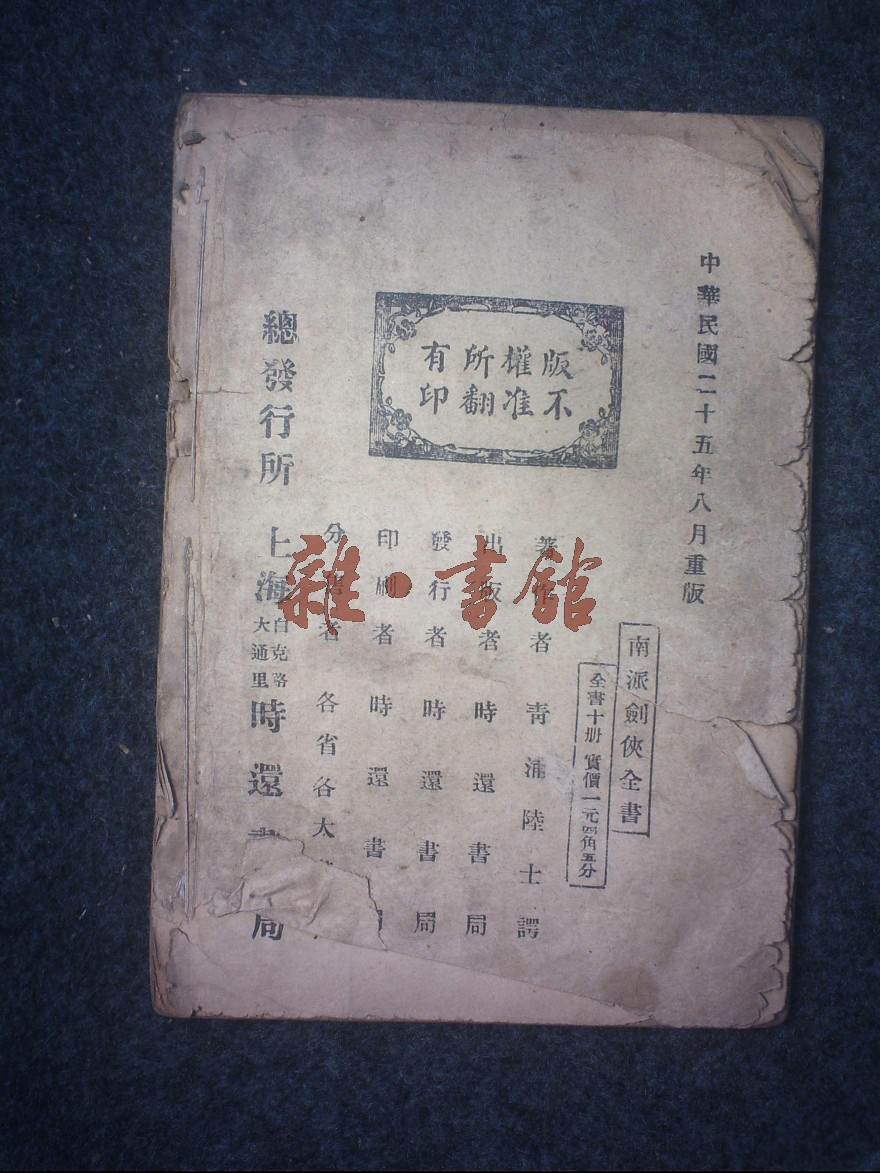 中華民國二十五年八月重版
南派劍俠全書
全書十册 實價一元四角五分
版權所有
不准翻印
著作者 青浦陸士諤
出版者 時還書局
發行者 時還書局
印刷者 時還書局
分售者 各省各大
總發行所 上海 白克路 大通里 時還書局
雜·書館